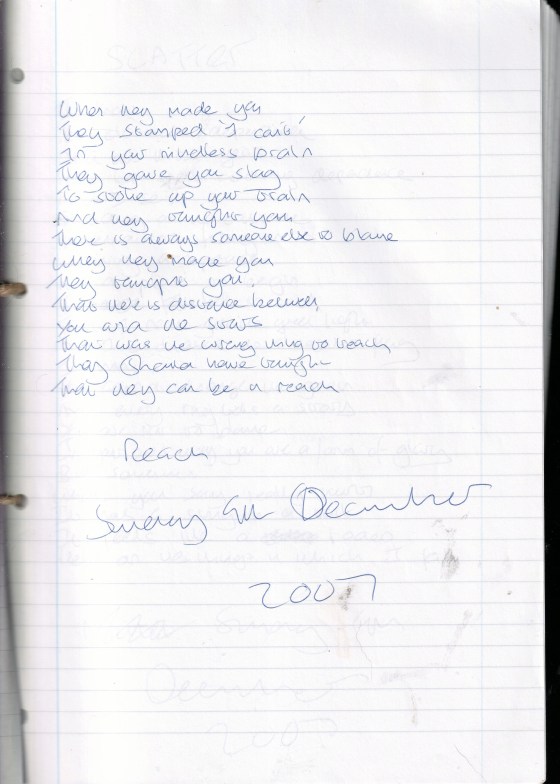 When they made you
They stamped 'I can't'
In your mindless brain
They gave you slag
To soake up your brain
And they taught you
There is always someone else to blame
When they made you
They taught you
That there is distance between
You and the stars
That was the wrong thing to teach
They should have taught
That they can be in reach
Reach
Sunday 9th December
2007